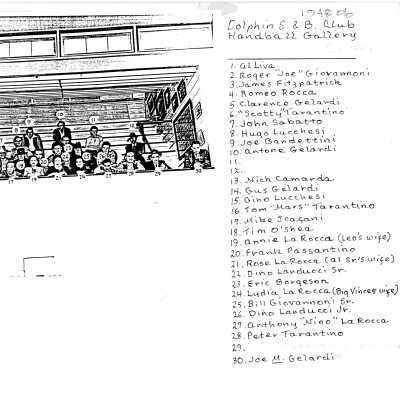 Dolphin S. & B. Club
Handball Gallery
1. Al Liva
2. Roger "Joe" Giovannoni
3. James Fitzpatrick
4. Romeo Rocca
5. Clarence Gelardi
6. "Scotty" Tarantino
7. John Sabatto
8. Hugo Lucchesi
9. Joe Bandettini
10. Antone Gelardi
11.
12.
13. Nick Camarda
14. Gus Gelardi
15. Gino Lucchesi
16. Tom "Mars" Tarantino
17. Mike Scagani
18. Tim O'Shea
19. Annie LaRocca (Leo's wife)
20. Frank Passantino
21. Rose LaRocca (Al Sr.'s wife)
22. Dino Landucci Sr.
23. Eric Borgeson
24. Lydia LaRocca (Big Vinces wife)
25. Bill Giovannoni Sr.
26. Dino Landucci Jr.
27. Anthony "Nino" LaRocca
28. Peter Tarantino
29.
30. Joe M. Gelardi
17 19 25 28 29 30